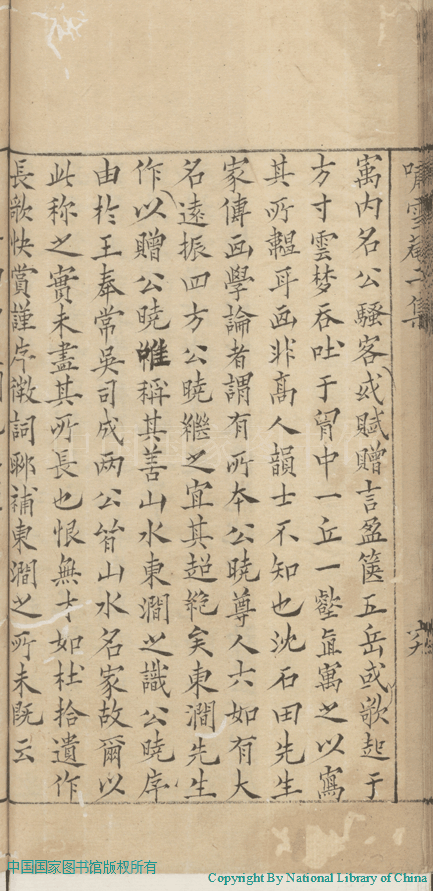 嘯雪菴二集
寓内名公騷客或賦贈言盈篋五岳或歌起于
方寸雲梦吞吐于胷中一丘一壑直寓之以寫
其所韞耳画非髙人韻士不知也沈石田先生
家傳画學論者謂有所本公曉尊人六如有大
名遠振四方公曉繼之宜其超絶矣東澗先生
作以贈公曉惟稱其善山水東澗之識公曉序
由於王奉常吳司成两公皆山水名家故爾以
此称之實未盡其所長也恨無才如杜拾遺作
長歌快賞謹序徴詞聊補東澗之所未既云
中国国家图书馆版权所有
Copyright By National Library of China